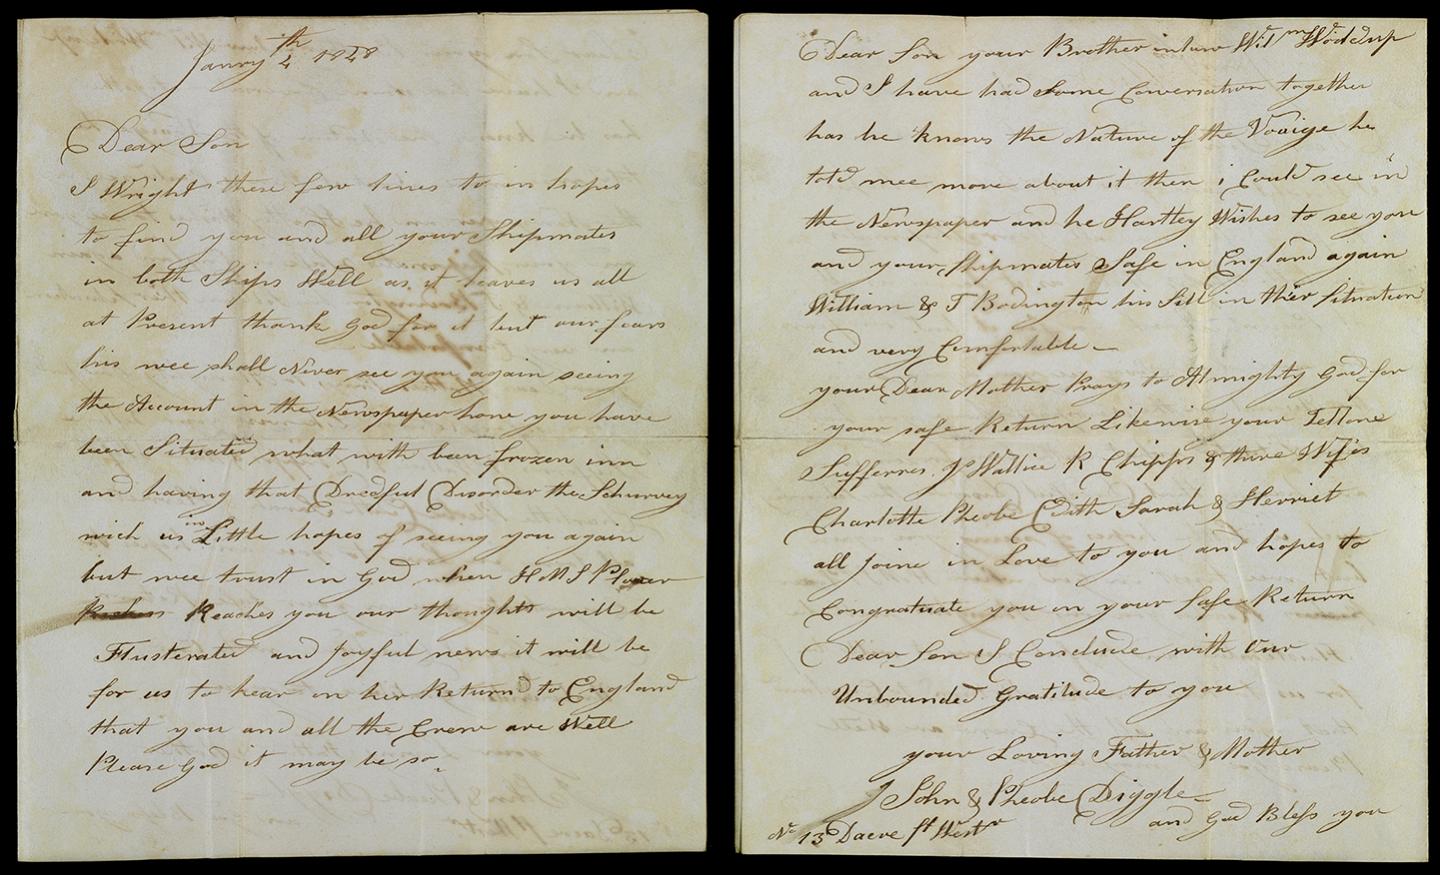 Janry 4th 1848
Dear Son
I Wright these few lines to in hopes
to find you and all your Shipmates
in both Ships Well as it leaves us all
at Present thank God for it but our fears
his wee shall Never see you again seeing
the Account in the Newspaper how you have
been Situated what with been frozen inn
and having that Dredful Disorder the Schurvey
wich is in Little hopes of seeing you again
but wee trust in God when HMS Plover
Reaches you our thoughts will be
Flusterated and Joyful news it will be
for us to hear on her Return to England
that you and all the Crew are Well
Please God it may be so
Dear Son your Brother inlaw Wilm Woodcup
and I have had Some Conversation together
has he knows the Nature of the Voaige he
told mee more about it then i Could see in
the Newspaper and he Hartley Wishes to see you
and your Shipmates Safe in England again
William & T Bodington his Still in their Situation
and very Comfortable
your Dear Mother Prays to Almighty God for
your safe Return Likewise your Fellow
Sufferres J Wallice R Chipps & there Wifes
Charlotte Pheobe Edith Sarah & Herriet
all Joine in Love to you and hopes to
Congratuate you on your Safe Return
Dear Son I Conclude with Our
Unbounded Gratitude to you
your Loving Father & Mother
John & Pheobe Diggle
and God Bless you
No 13 Dacre St Westr